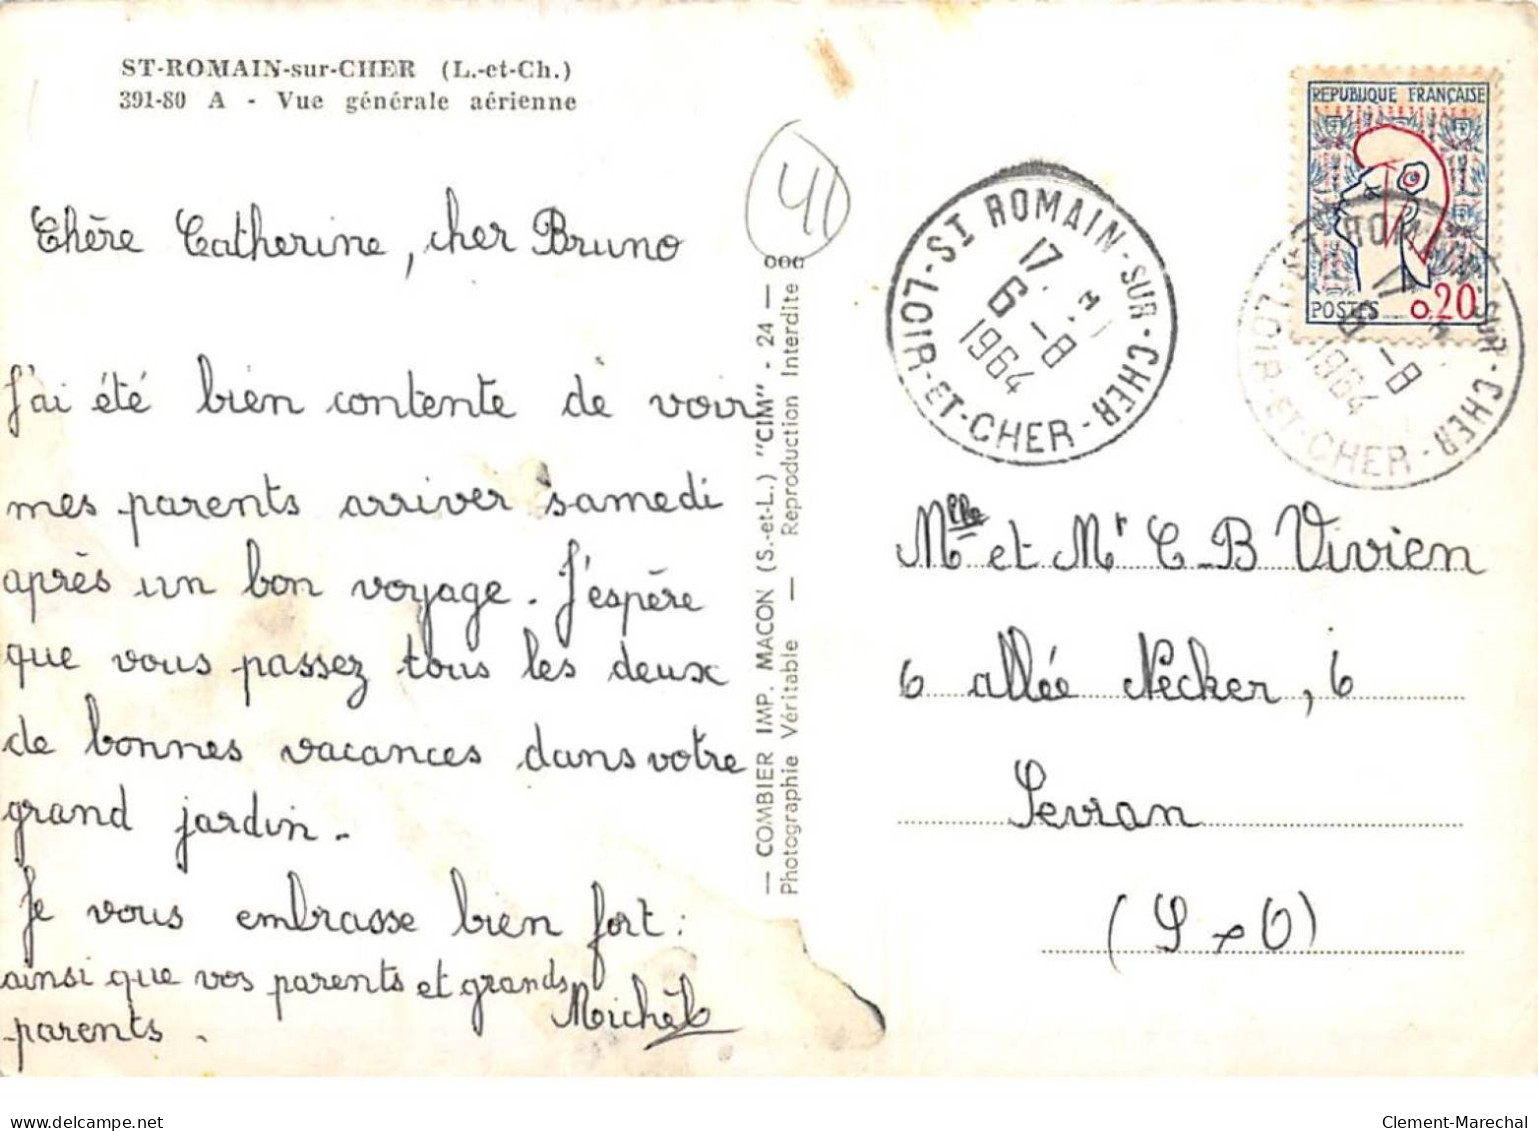 ST-ROMAIN-sur-CHER (L.-et-Ch.)
391-80 A - Vue générale aérienne
Chère Catherine, cher Bruno
J'ai été bien contente de voir
mes parents arriver samedi
après un bon voyage. J'espère
que vous passez tous les deux
de bonnes vacances dans votre
grand jardin.
Je vous embrasse bien fort :
ainsi que vos parents et grands
-parents.
Michèle
41
— COMBIER IMP. MACON (S.-et-L.) "CIM" - 24 —
Photographie Véritable — Reproduction Interdite
REPUBLIQUE FRANÇAISE
POSTES 0,20
ST ROMAIN-SUR-CHER - LOIR-ET-CHER -
17
6 - 8
1964
ST ROMAIN-SUR-CHER - LOIR-ET-CHER -
17
6 - 8
1964
Mlle et Mr C-B Vivien
6 allée Necker, 6
Sevran
(S-O)
Clement-Marechal